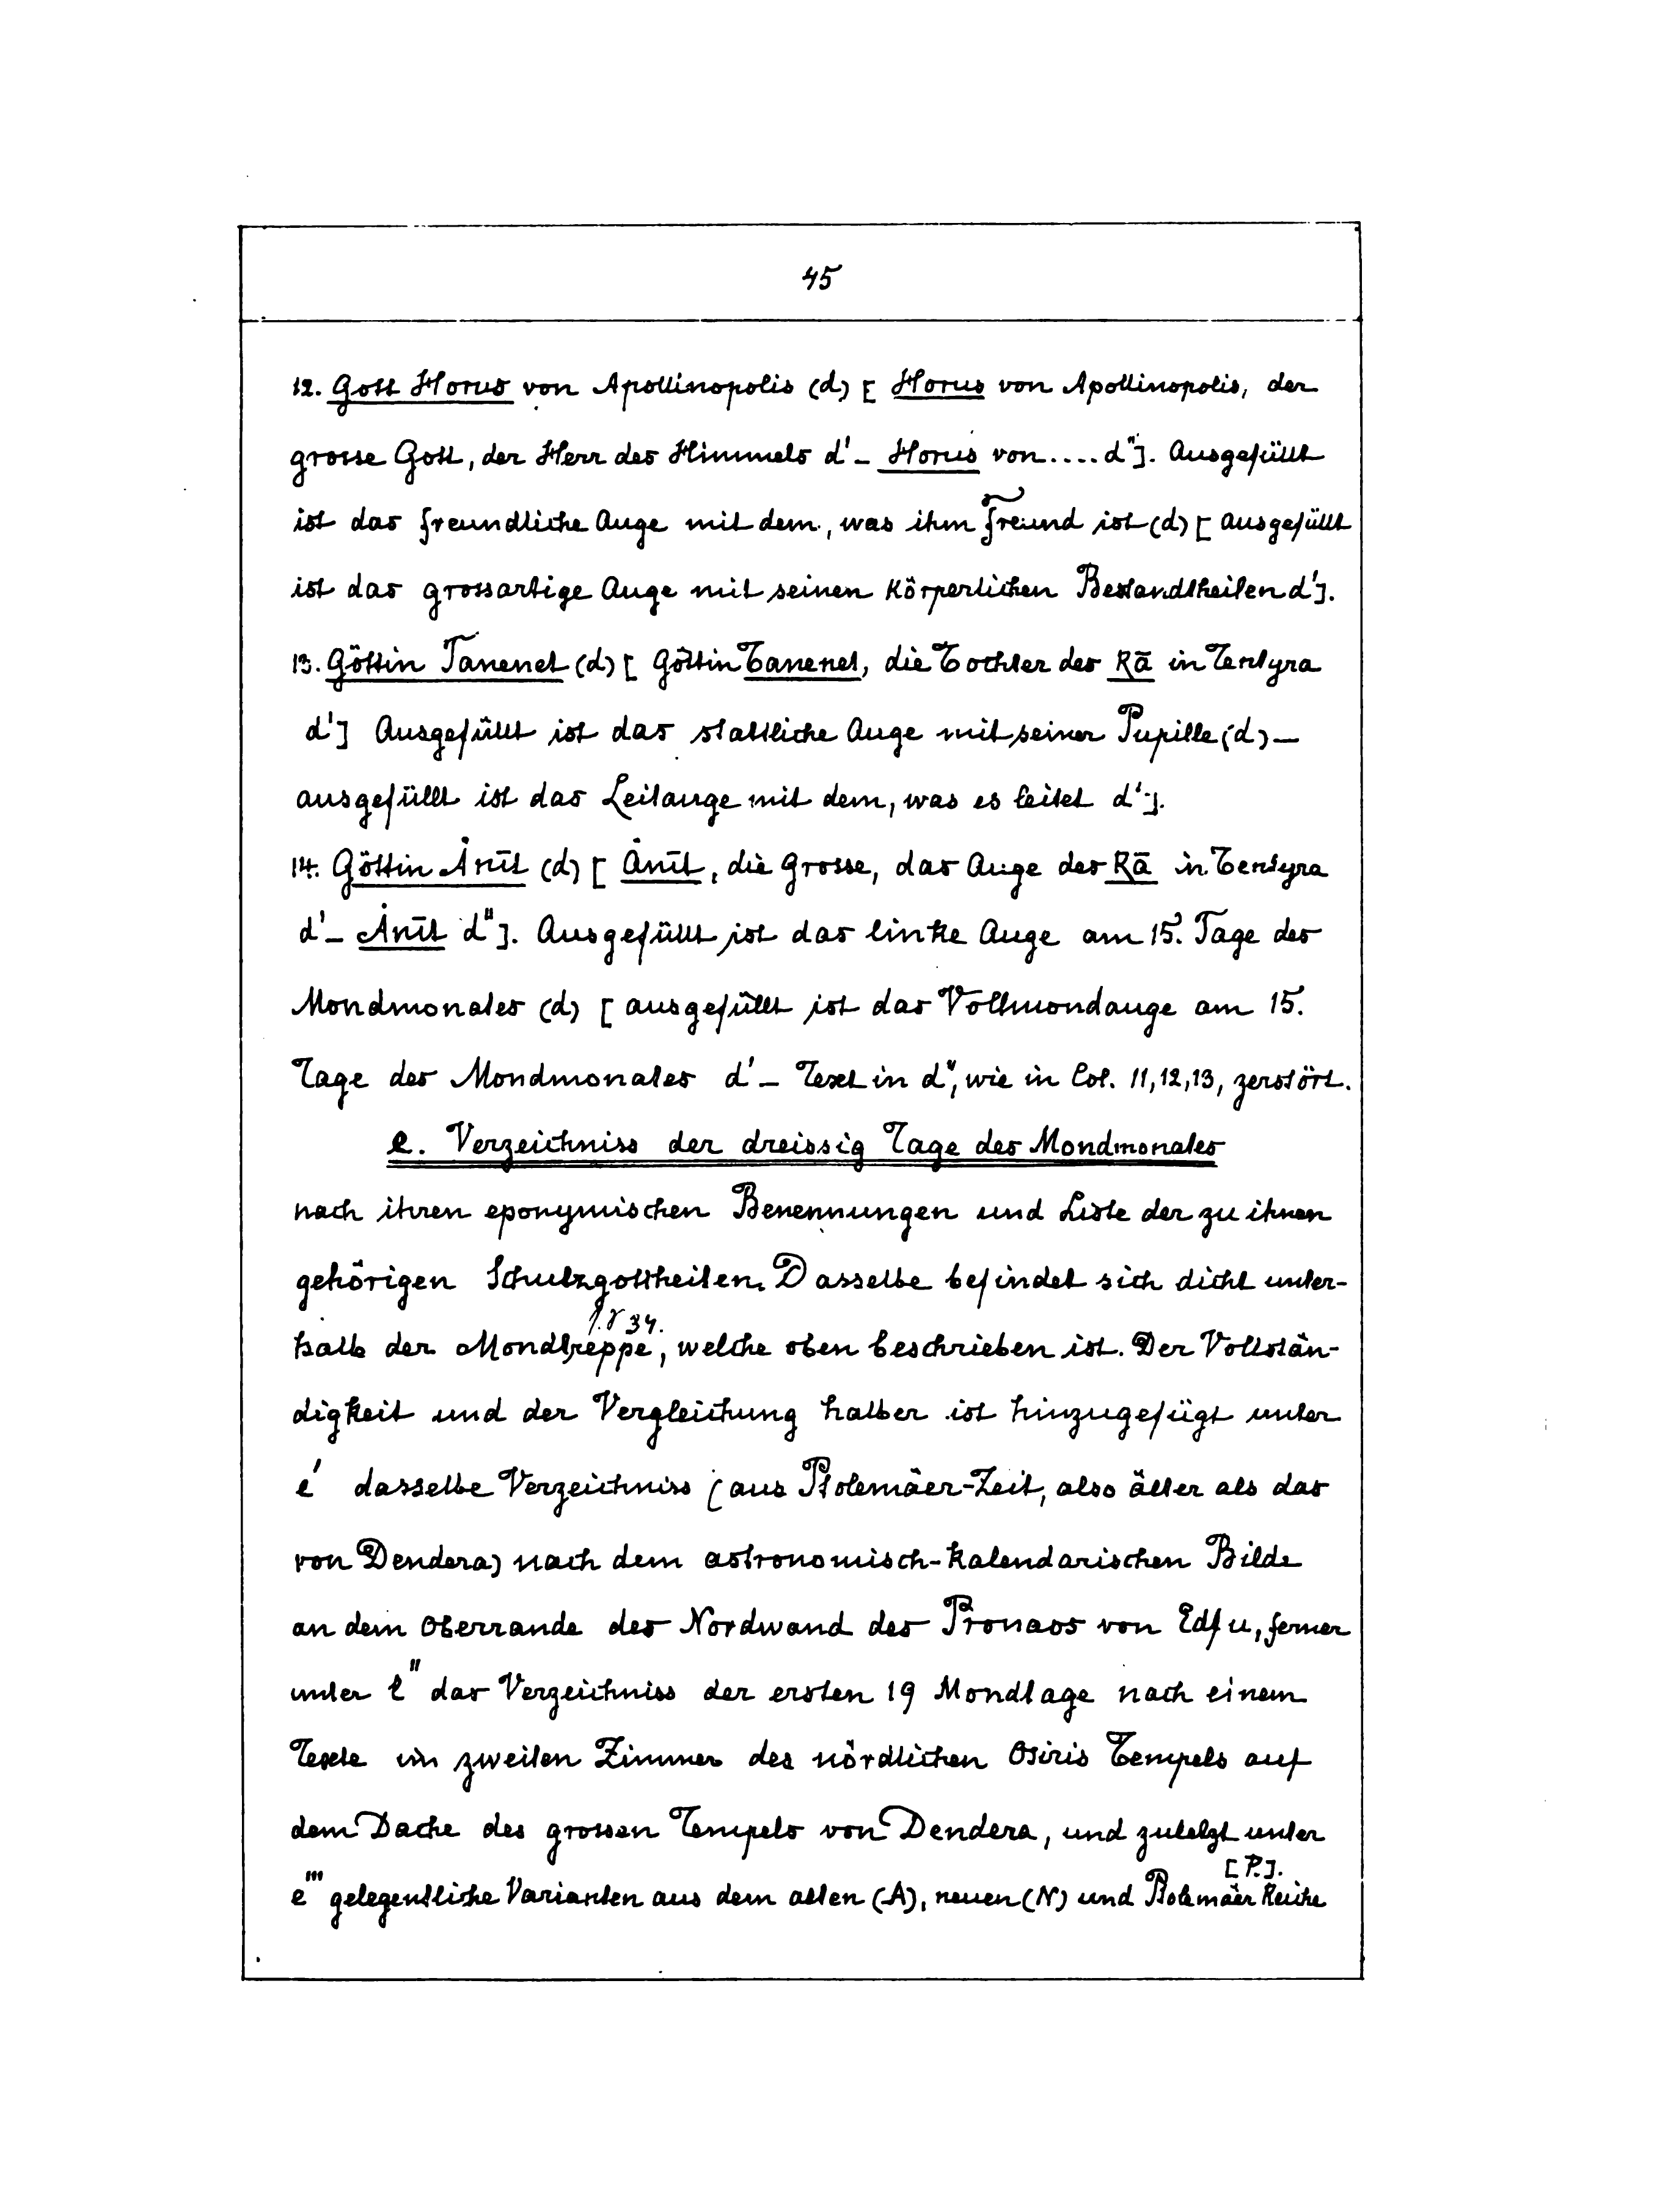 45
12. Gott Horus von Apollinopolis (d) [ Horus von Apollinopolis, der
grosse Gott, der Herr des Himmels d' _ Horus von .... d"]. Ausgefüllt
ist das freundliche Auge mit dem, was ihm freund ist (d) [ ausgefüllt
ist das grossartige Auge mit seinen körperlichen Bestandtheilen d'].
13. Göttin Tanenet (d) [ Göttin Tanenet, die Tochter des Rā in Tentyra
d'] Ausgefüllt ist das stattliche Auge mit seiner Pupille (d) _
ausgefüllt ist das Leitauge mit dem, was es leitet d'].
14. Göttin Ȧnīt (d) [ Ȧnīt, die Grosse, das Auge des Rā in Tentyra
d' _ Ȧnīt d"]. Ausgefüllt ist das linke Auge am 15. Tage des
Mondmonates (d) [ ausgefüllt ist das Vollmondauge am 15.
Tage des Mondmonates d' _ Text in d", wie in Col. 11, 12, 13, zerstört.
e. Verzeichniss der dreissig Tage des Mondmonates
nach ihren eponymischen Benennungen und Liste der zu ihnen
gehörigen Schutzgottheiten. Dasselbe befindet sich dicht unter-
halb der Mondtreppe, welche oben beschrieben ist. Der Vollstän-
digkeit und der Vergleichung halber ist hinzugefügt unter
e' dasselbe Verzeichniss (aus Ptolemäer-Zeit, also älter als das
von Dendera) nach dem astronomisch-kalendarischen Bilde
an dem Oberrande der Nordwand des Pronaos von Edfu, ferner
unter e" das Verzeichniss der ersten 19 Mondtage nach einem
Texte im zweiten Zimmer des nördlichen Osiris Tempels auf
dem Dache des grossen Tempels von Dendera, und zuletzt unter
[P.].
e''' gelegentliche Varianten aus dem alten (A), neuen (N) und Ptolemäer Reiche